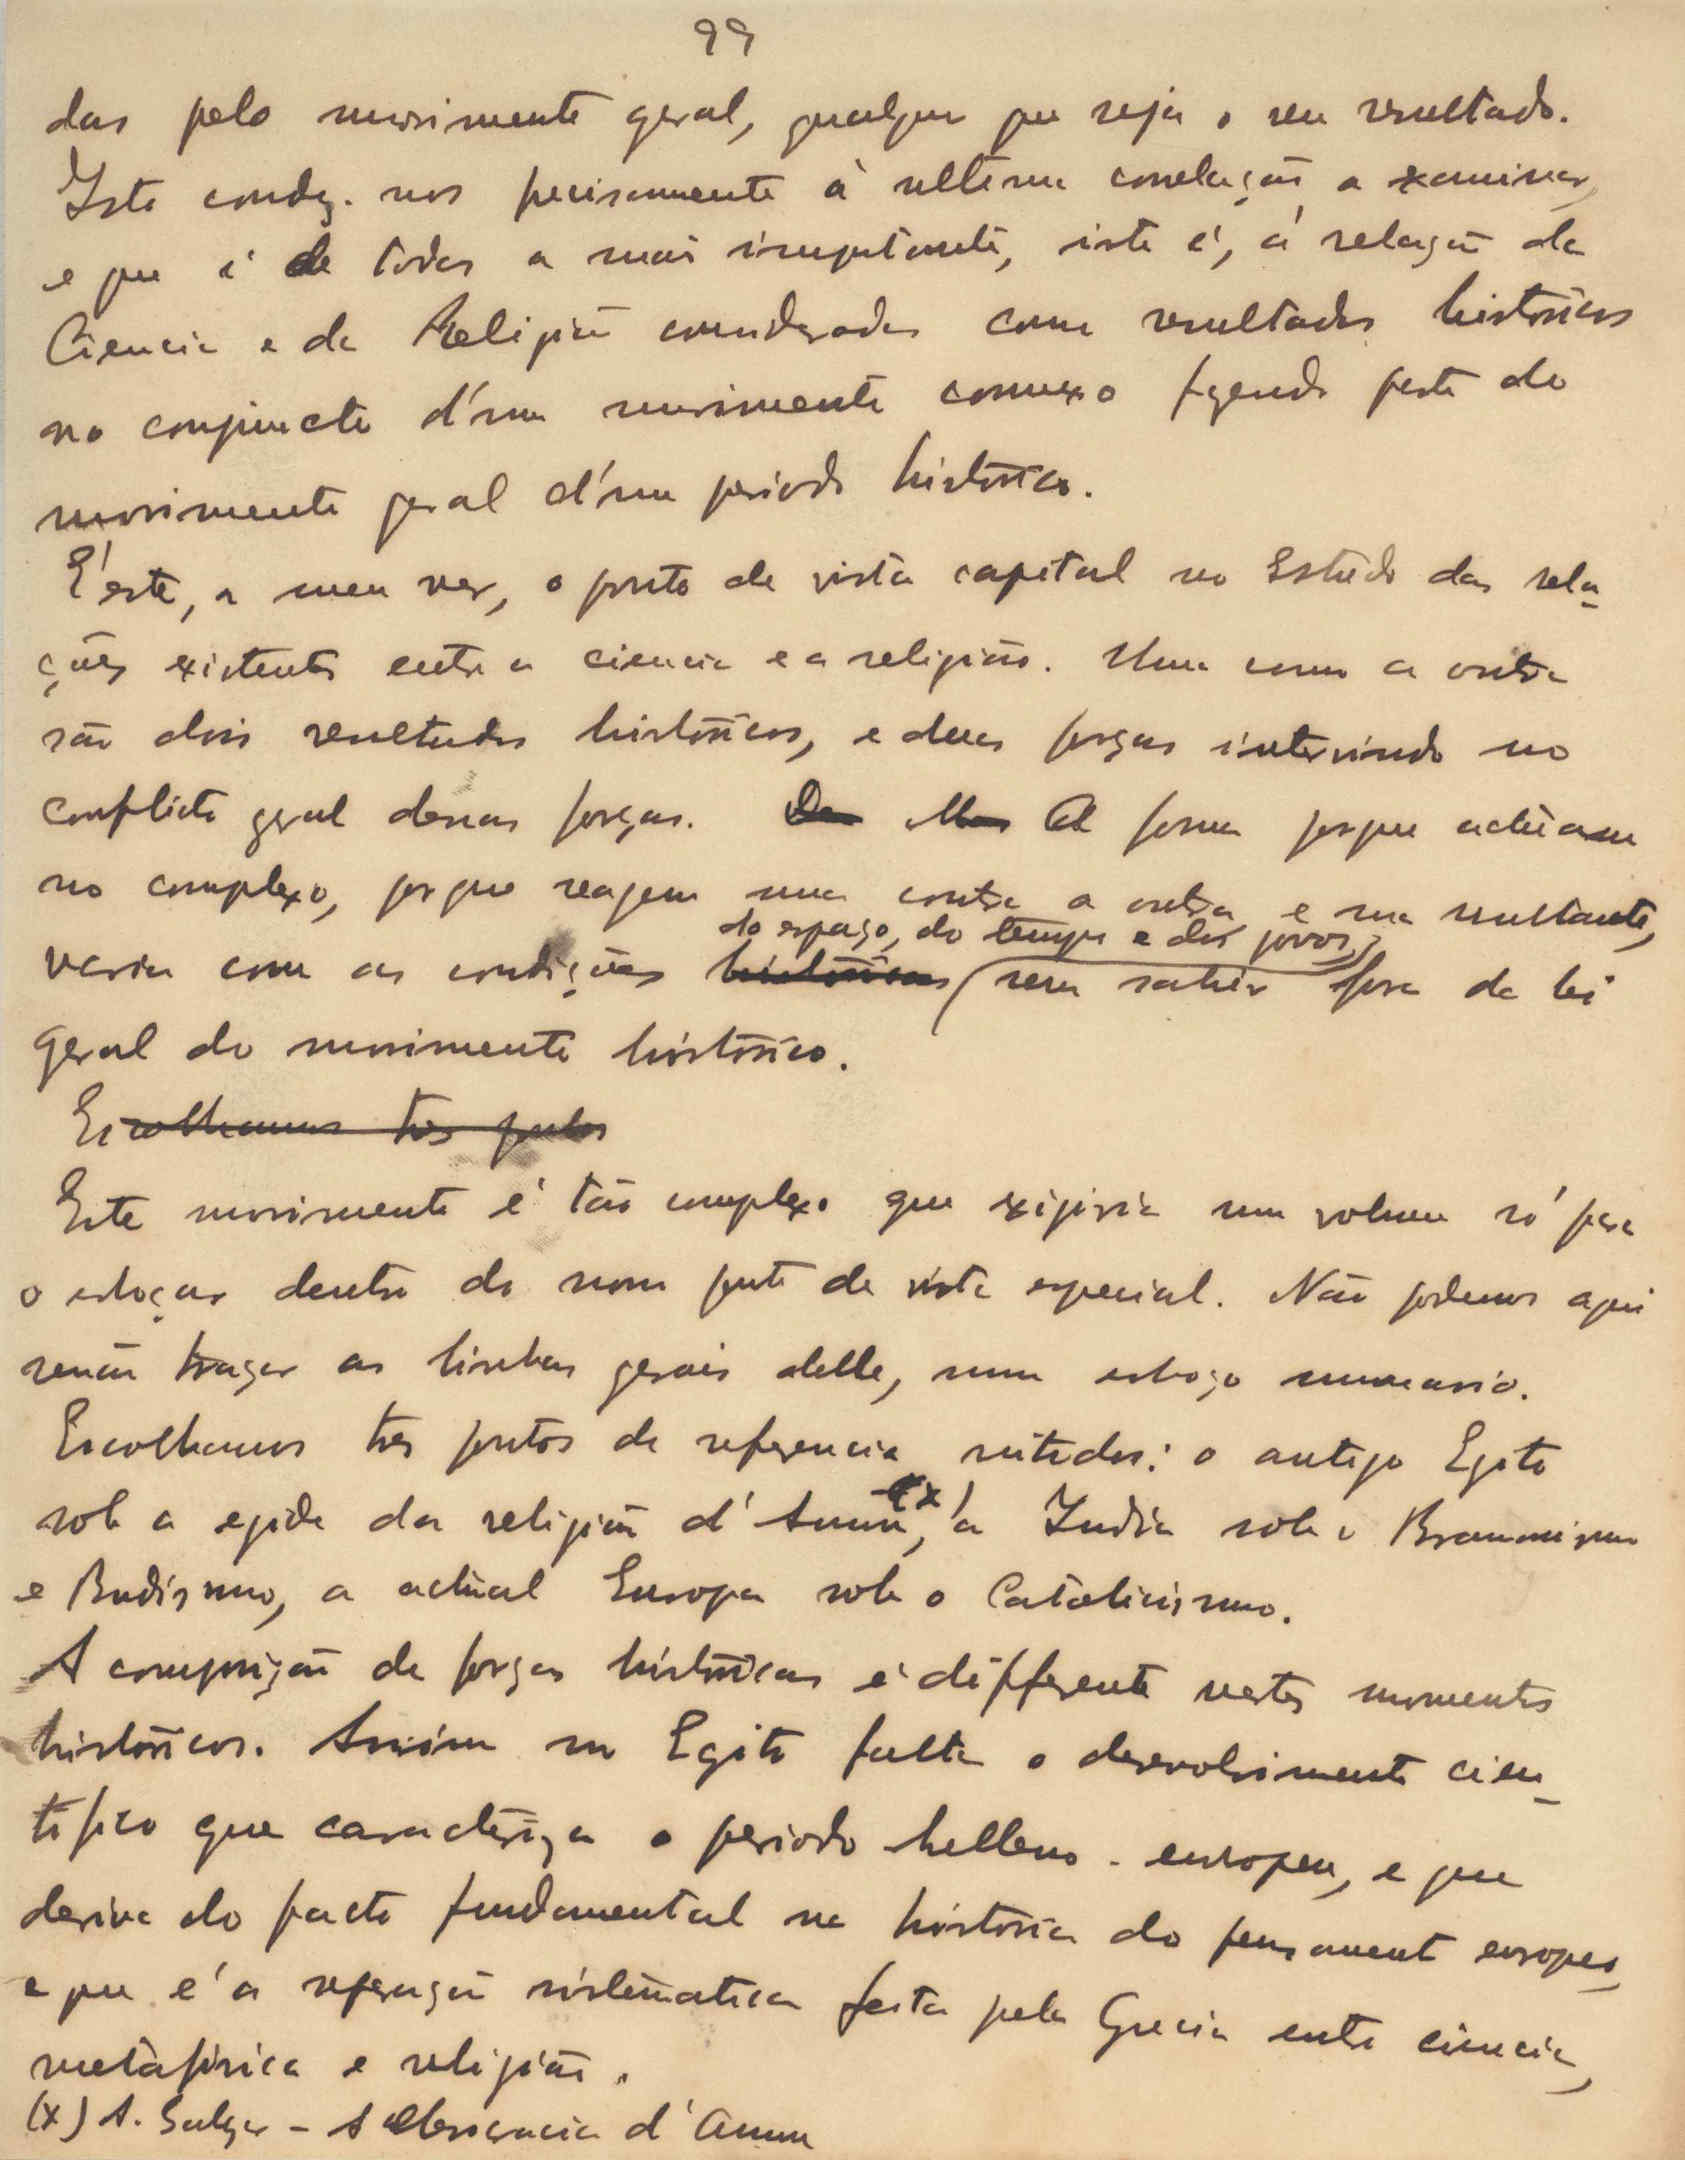 99
das pelo movimento geral, qualquer que seja o seu resultado.
Isto conduz-nos precisamente á ultima correlação a examinar,
e que é de todas a mais importante, isto é, á relação da
Ciencia e da Religião consideradas como resultados históricos
no conjuncto d'um movimento connexo fazendo parte do
movimento geral d'um periodo histórico.
É este, a meu ver, o ponto de vista capital no Estudo das rela-
ções existentes entre a ciencia e a religião. Uma como a outra
são dois resultados históricos, e duas forças intervindo no
conflicto geral dessas forças. Da Mas A forma porque actúam
no complexo, porque reagem uma contra a outra e sua resultante,
do espaço, do tempo e dos povos,
varia com as condições históricas sem sahir fora da lei
geral do movimento histórico.
Escolhamos tres pontos
Este movimento é tão complexo que exigiria um volume só para
o esboçar dentro do nosso ponto de vista especial. Não podemos aqui
senão traçar as linhas gerais delle, num esboço summario.
Escolhamos tres pontos de referencia nitidos: o antigo Egito
sob a egide da religião d'Amun (x), a India sob o Bramanismo
e Budismo, a actual Europa sob o Catolicismo.
A composição de forças históricas é differente nestes momentos
históricos. Assim no Egito falta o desenvolvimento cien-
tifico que caracteriza o periodo helleno-europeu, e que
deriva do facto fundamental na história do pensamento europeu,
e que é a separação sistematica feita pela Grecia entre ciencia,
metafisica e religião.
(x) A. - A d'Amun